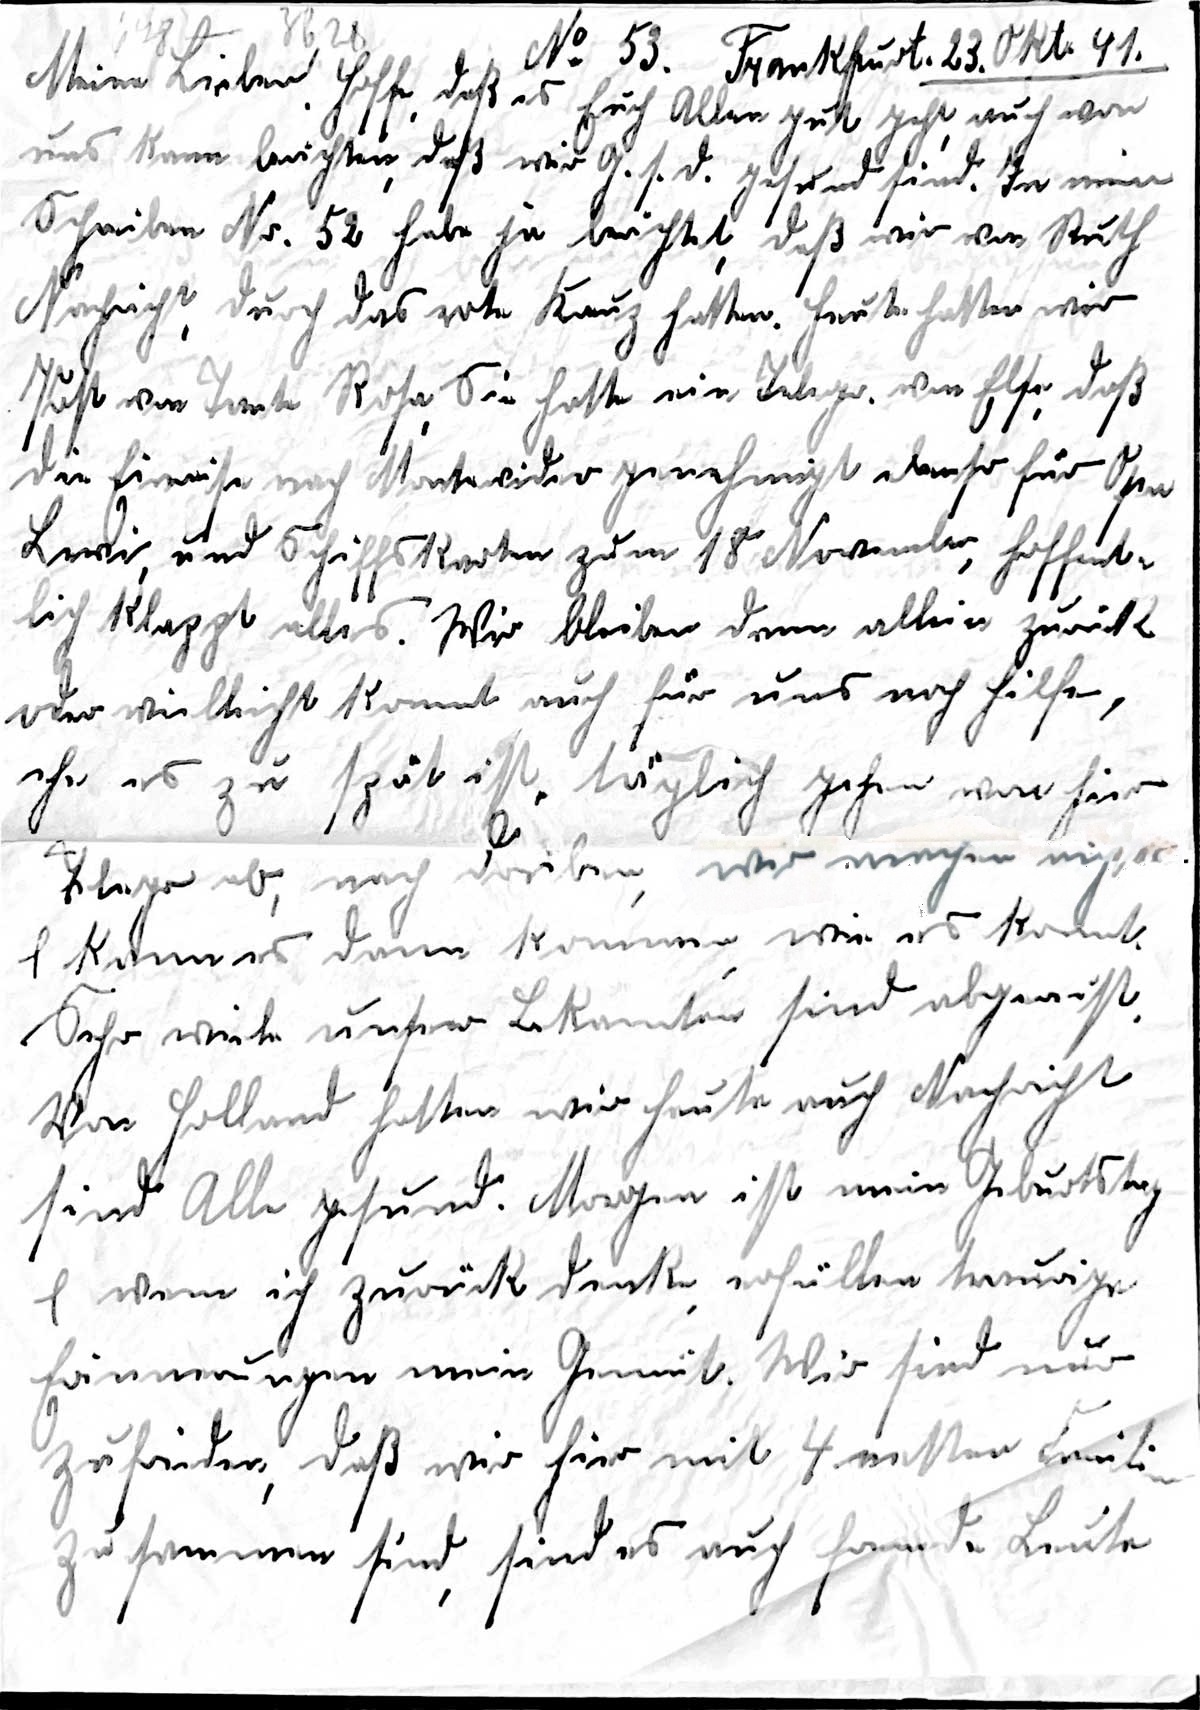 No 53. Frankfurt. 23. Okt. 41.
Meine Lieben! Hoffe, daß es Euch Allen gut geht, auch von
uns kann berichten, daß wir G. s. d. gesund sind. In meinem
Schreiben Nr. 52 habe ja berichtet, daß wir von Ruth
Nachricht, durch das rote Kreuz hatten. Heute hatten wir
Post von Tante Rosa, Sie hatte ein Telegr. von Else, daß
die Einreise nach Montevideo genehmigt ebenso für
Levi, und Schiffskarten zum 18 November, hoffent-
lich klappt alles. Wir bleiben dann allein zurück
oder vielleicht kommt auch für uns noch Hilfe,
ehe es zu spät ist. täglich gehen von hier
Telegr ab, nach drüben, wir machen
kann es dann kommen, wie es kommt.
Sehr viele unser Bekannten sind abgereist.
Von Holland hatten wir heute auch Nachricht
sind Alle gesund. Morgen ist mein Geburtstag
wenn ich zurück denke, erfüllen traurige
Erinnerungen mein Gemüt. Wir sind nur
zufrieden, daß wir hier mit 4 netten
zusammen sind, sind es auch fremde Leute